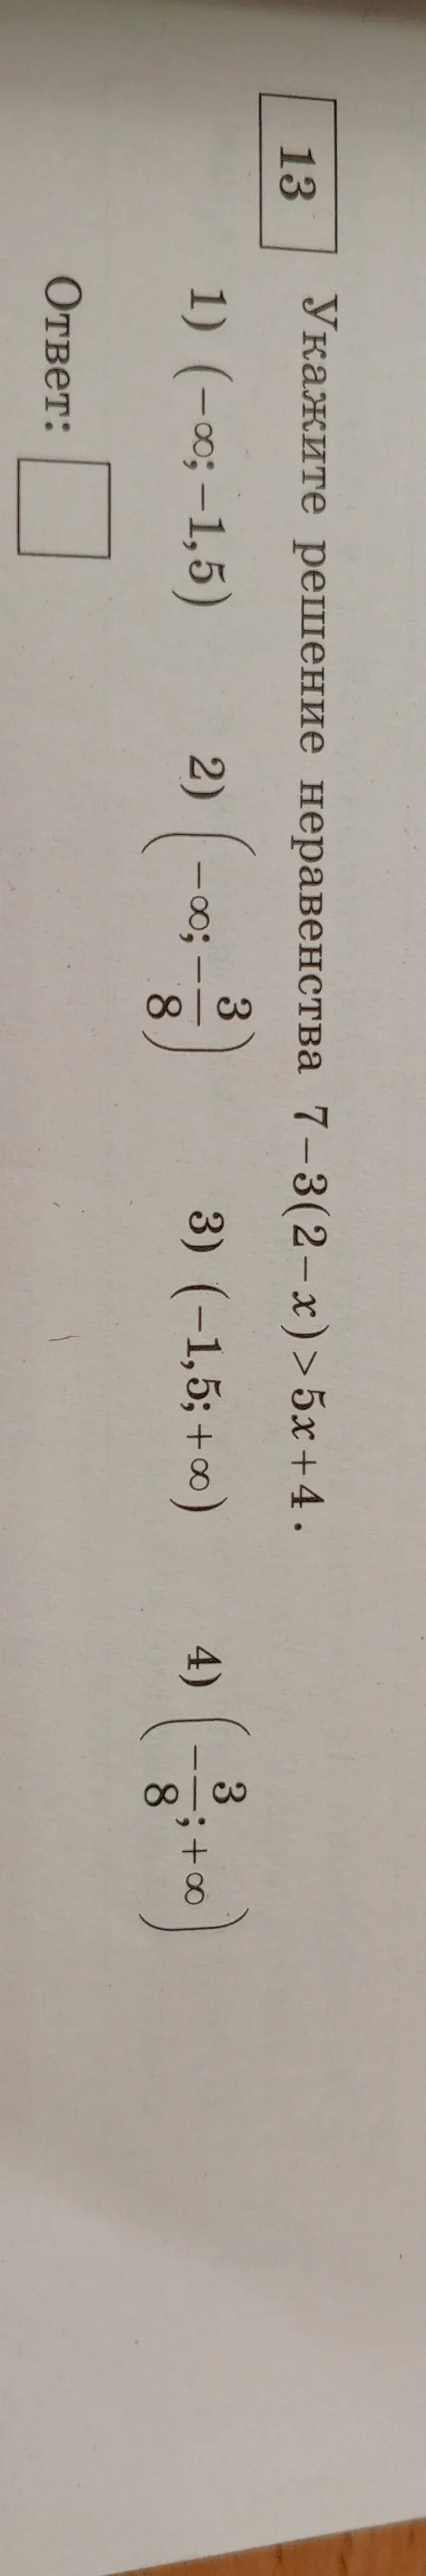 13 Укажите решение неравенства 7−3(2−x)>5x+4.
1) (−∞; −1,5) 2) (−∞; −3/8) 3) (−1,5; +∞) 4) (−3/8; +∞)
Ответ: